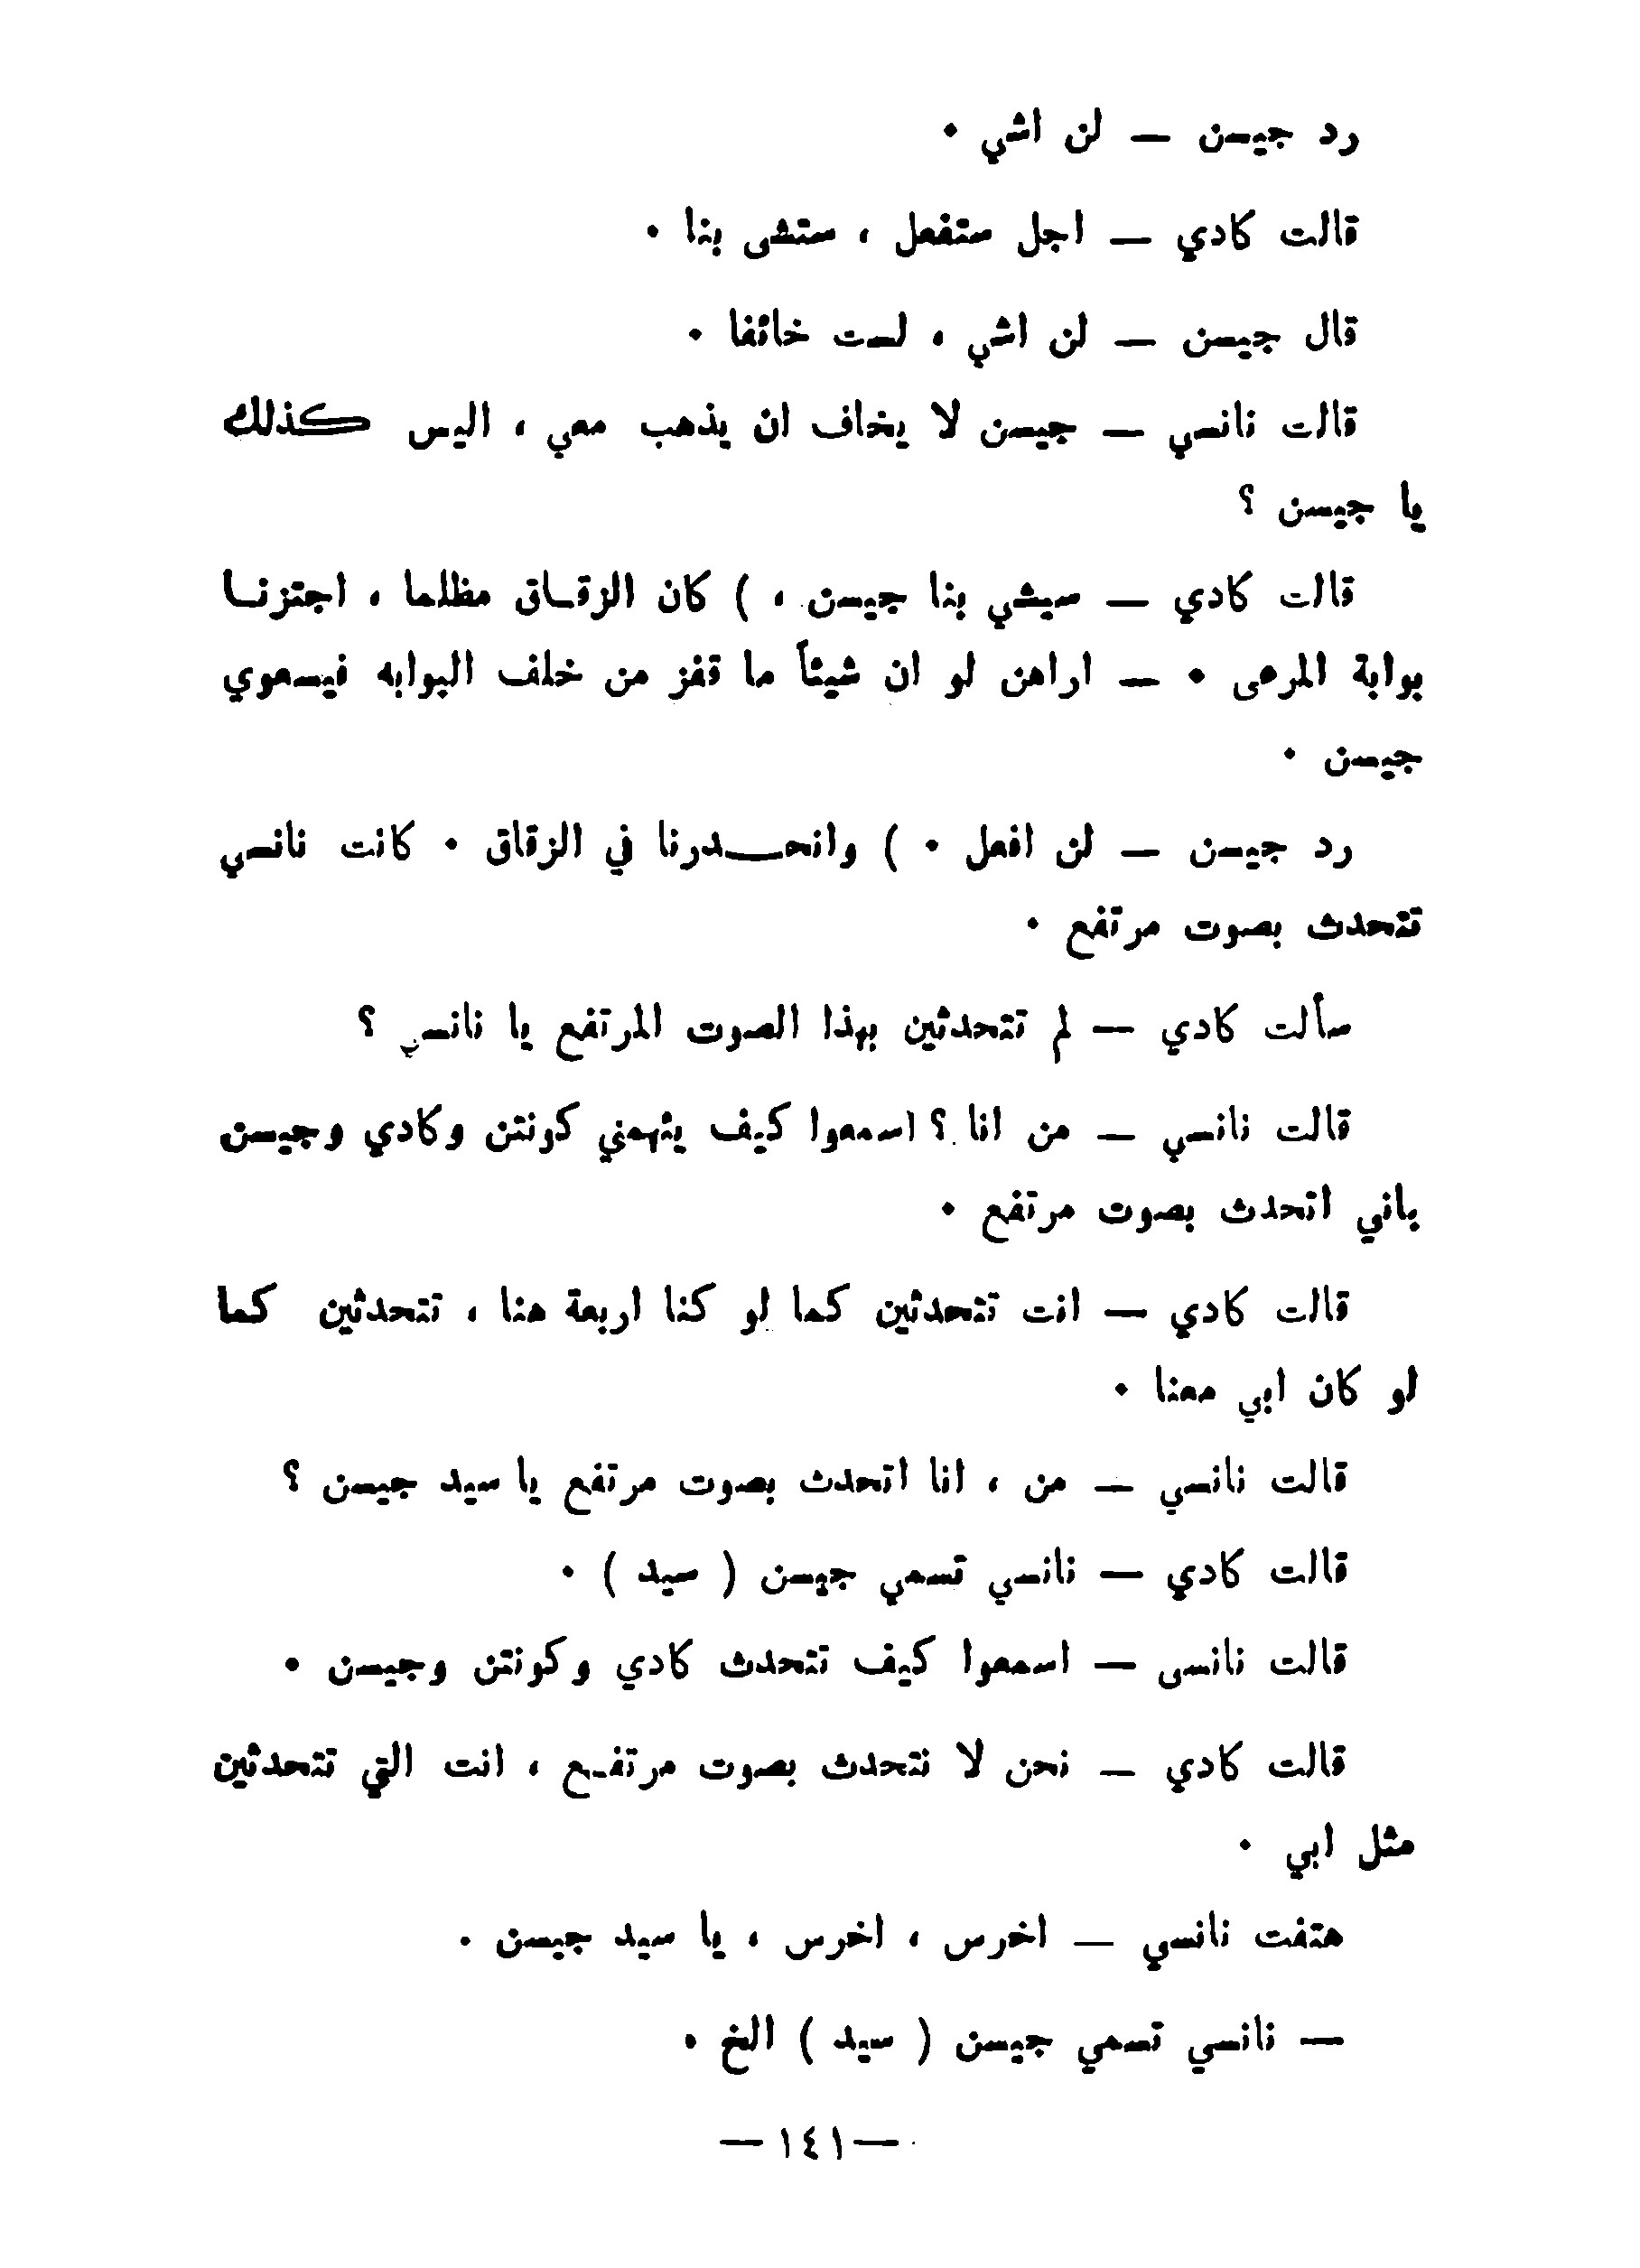 رد جيسن — لن اشي .
قالت كادي — اجل ستفعل ، ستشى بنا .
قال جيسن — لن اشي ، لست خائفا .
قالت نانسي — جيسن لا يخاف ان يذهب معي ، اليس كذلك
يا جيسن ؟
قالت كادي — سيشي بنا جيسن ، ) كان الزقاق مظلما ، اجتزنا
بوابة المرعى . — اراهن لو ان شيئاً ما قفز من خلف البوابه فيسعوي
جيسن .
رد جيسن — لن افعل . ) وانحدرنا في الزقاق . كانت نانسي
تتحدث بصوت مرتفع .
سألت كادي — لم تتحدثين بهذا الصوت المرتفع يا نانسي ؟
قالت نانسي — من انا ؟ اسمعوا كيف يتهمني كونتن وكادي وجيسن
باني اتحدث بصوت مرتفع .
قالت كادي — انت تتحدثين كما لو كنا اربعة هنا ، تتحدثين كما
لو كان ابي معنا .
قالت نانسي — من ، انا اتحدث بصوت مرتفع يا سيد جيسن ؟
قالت كادي — نانسي تسمي جيسن ( سيد ) .
قالت نانسى — اسمعوا كيف تتحدث كادي وكونتن وجيسن .
قالت كادي — نحن لا نتحدث بصوت مرتفع ، انت التي تتحدثين
مثل ابي .
هتفت نانسي — اخرس ، اخرس ، يا سيد جيسن .
— نانسي تسمي جيسن ( سيد ) الخ .
— ١٤١ —